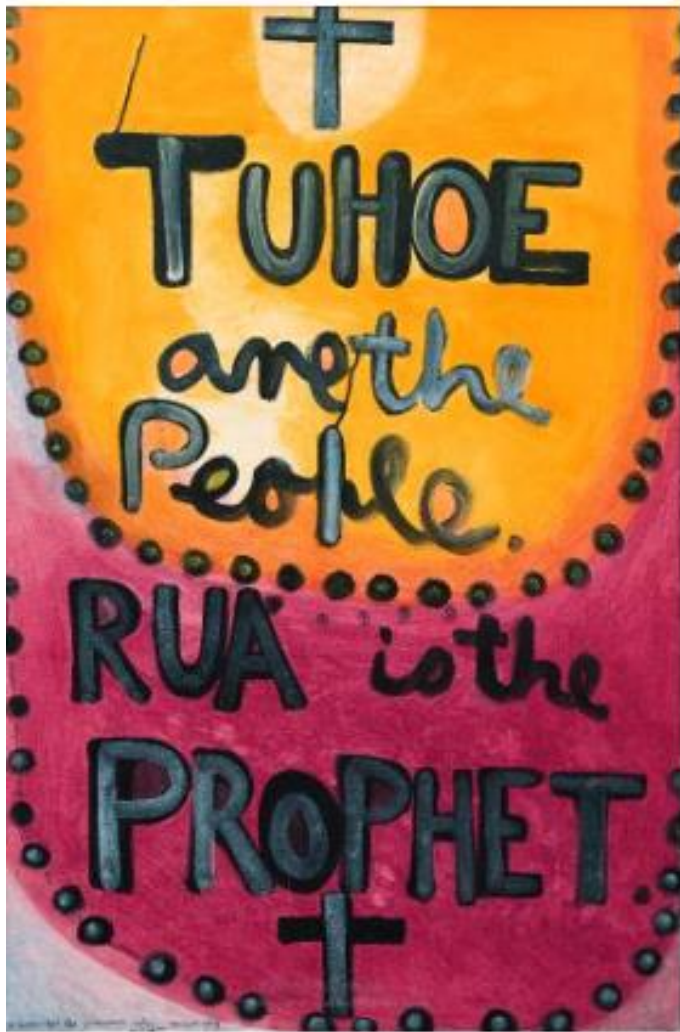 TUHOE
are the
People.
RUA is the
PROPHET.